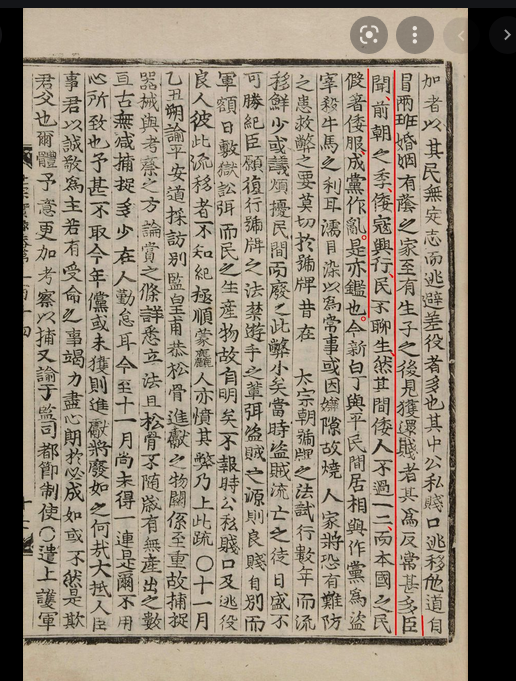 加者以其民無定志而逃避差役者多也其中公私賤口逃移他道自
冒兩班婚姻有蔭之家至有生子之後見獲還賤者其爲反常甚多臣
聞前朝之季倭寇興行民不聊生然其間倭人不過一二而本國之民
假著倭服成黨作亂是亦鑑也今新白丁與平民間居相與作黨爲盜
宰殺牛馬之利耳濡目染以爲常事或因嫌隙故燒人家將恐有難防
之患救弊之要莫切於號牌昔在 太宗朝號牌之法試行數年而流
移鮮少或議煩擾民間而廢之此弊小矣當時盜賊流亡之徒日盛不
可勝紀臣願復行號牌之法禁遊手之輩弭盜賊之源則良賤自別而
軍額日數獄訟弭而民之生産物故有明矣不報時公私賤口及逃役
良人彼此流移者不知紀極順蒙麤人亦憤其弊乃上此疏〇十一月
乙丑朔諭平安道採訪別監皇甫恭松骨進獻之物關係至重故捕捉
器械與考察之方論賞之條詳悉立法且松骨不隨歲有無產出之數
亘古無減捕捉多少在人勤怠耳今至十一月尚未得一連是爾不用
心所致也予甚不取今年儻或未獲則進獻將廢如之何哉大抵人臣
事君以誠敬爲主若有受命之事竭力盡心期於必成如或不然是欺
君父也爾體予意更加考察以捕又諭于監司都節制使〇遣上護軍